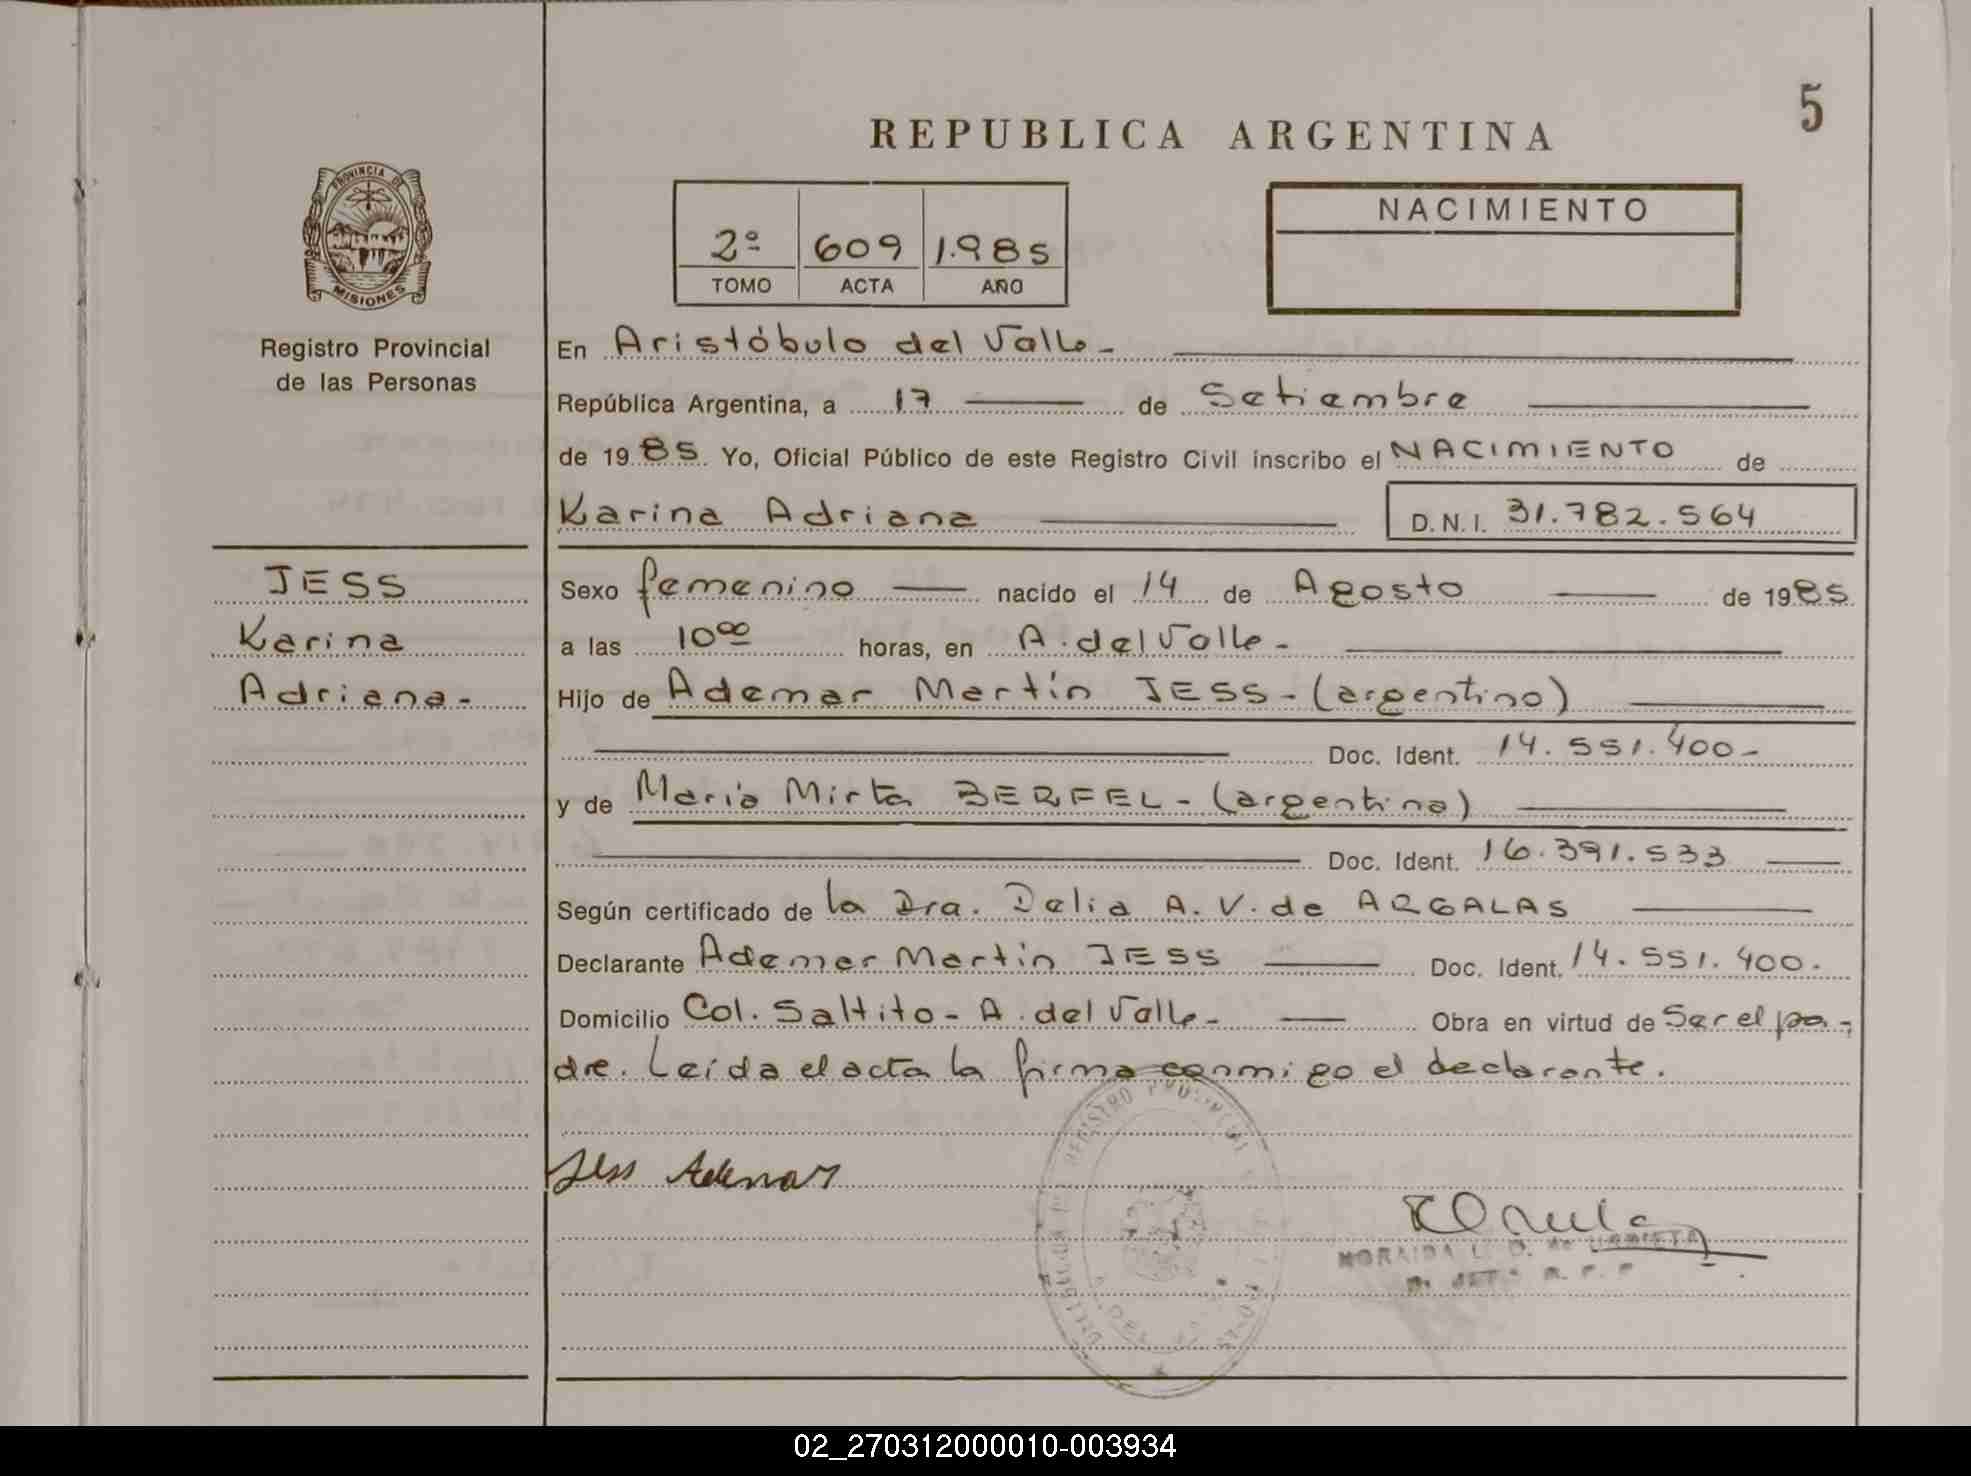 5
REPUBLICA ARGENTINA
PROVINCIA DE
MISIONES
2º 609 1.985
TOMO ACTA AÑO
NACIMIENTO
Registro Provincial
de las Personas
En Aristóbulo del Valle-
República Argentina, a 17 de Setiembre
de 1985 Yo, Oficial Público de este Registro Civil inscribo el NACIMIENTO de
Karina Adriana D.N.I. 31.782.564
JESS
Karina
Adriana-
Sexo femenino nacido el 14 de Agosto de 1985
a las 10⁰⁰ horas, en A. del Valle-
Hijo de Ademar Martín JESS-(argentino)
Doc. Ident. 14.551.400-
y de María Mirta BERFEL-(argentina)
Doc. Ident. 16.391.533
Según certificado de la Dra. Delia A. V. de ARGALAS
Declarante Ademar Martín JESS Doc. Ident. 14.551.400.
Domicilio Col. Saltito- A. del Valle- Obra en virtud de Ser el pa-
dre. Leída el acta la firma conmigo el declarante.
Jess Ademar
02_270312000010-003934